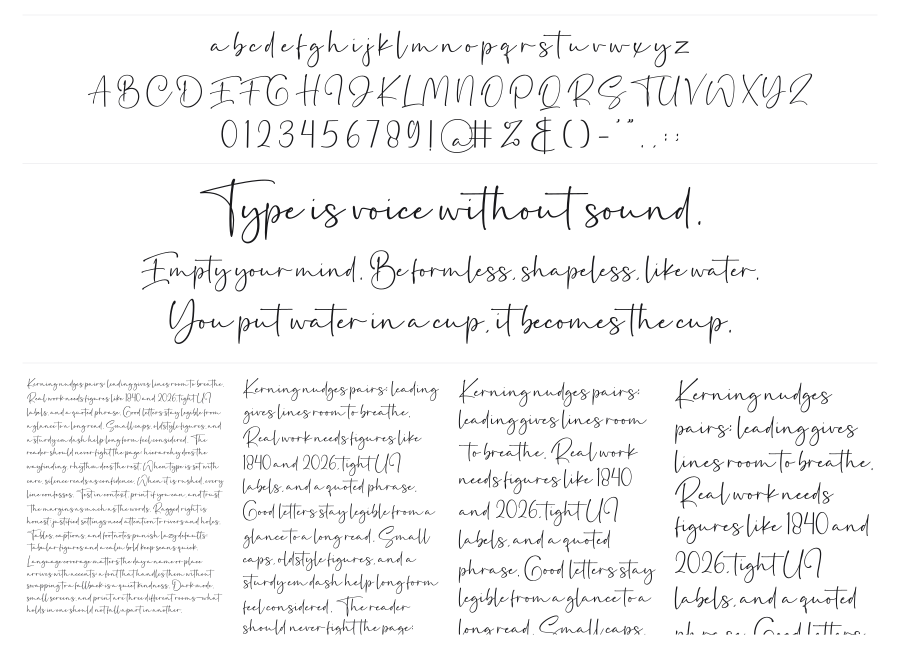 abcdefghijklmnopqrstuvwxyz
ABCDEFGHIJKLMNOPQRSTUVWXYZ
0123456789!@#%&()-'".,:;
Type is voice without sound.
Empty your mind. Be formless, shapeless, like water.
You put water in a cup, it becomes the cup.
Kerning nudges pairs; leading gives lines room to breathe.
Real work needs figures like 1840 and 2026, tight UI
labels, and a quoted phrase. Good letters stay legible from
a glance to a long read. Small caps, oldstyle figures, and
a sturdy em dash help long form feel considered. The
reader should never fight the page; hierarchy does the
wayfinding, rhythm does the rest. When type is set with
care, silence reads as confidence. When it is rushed, every
line confesses. Test in context, print if you can, and trust
the margins as much as the words. Ragged right is
honest; justified settings need attention to rivers and holes.
Tables, captions, and footnotes punish lazy defaults.
Tabular figures and a calm bold keep scans quick.
Language coverage matters the day a name or place
arrives with accents; a font that handles them without
swapping to a fallback is a quiet kindness. Dark mode,
small screens, and print are three different rooms—what
holds in one should not fall apart in another.
Kerning nudges pairs; leading
gives lines room to breathe.
Real work needs figures like
1840 and 2026, tight UI
labels, and a quoted phrase.
Good letters stay legible from a
glance to a long read. Small
caps, oldstyle figures, and a
sturdy em dash help long form
feel considered. The reader
should never fight the page;
Kerning nudges pairs;
leading gives lines room
to breathe. Real work
needs figures like 1840
and 2026, tight UI
labels, and a quoted
phrase. Good letters stay
legible from a glance to a
long read. Small caps,
Kerning nudges
pairs; leading gives
lines room to breathe.
Real work needs
figures like 1840 and
2026, tight UI
labels, and a quoted
phrase. Good letters